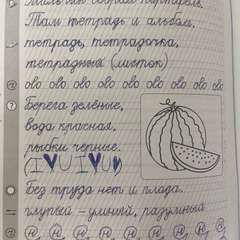 Мальчик собрал портфель.
Там тетрадь и альбом.
тетрадь, тетрадочка,
тетрадный (листок)
ово ово ово ово ово ово ово ово ово
Берега зелёные,
вода красная,
рыбки чёрные.
Без труда нет и плода.
глупый – умный, разумный